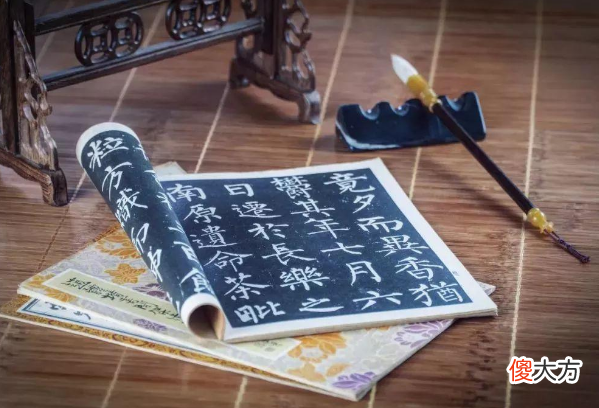 竟夕而異香猶
鬱其年七月六
日遷於長樂之
南原遺命茶毗
粒方熾
傻大方